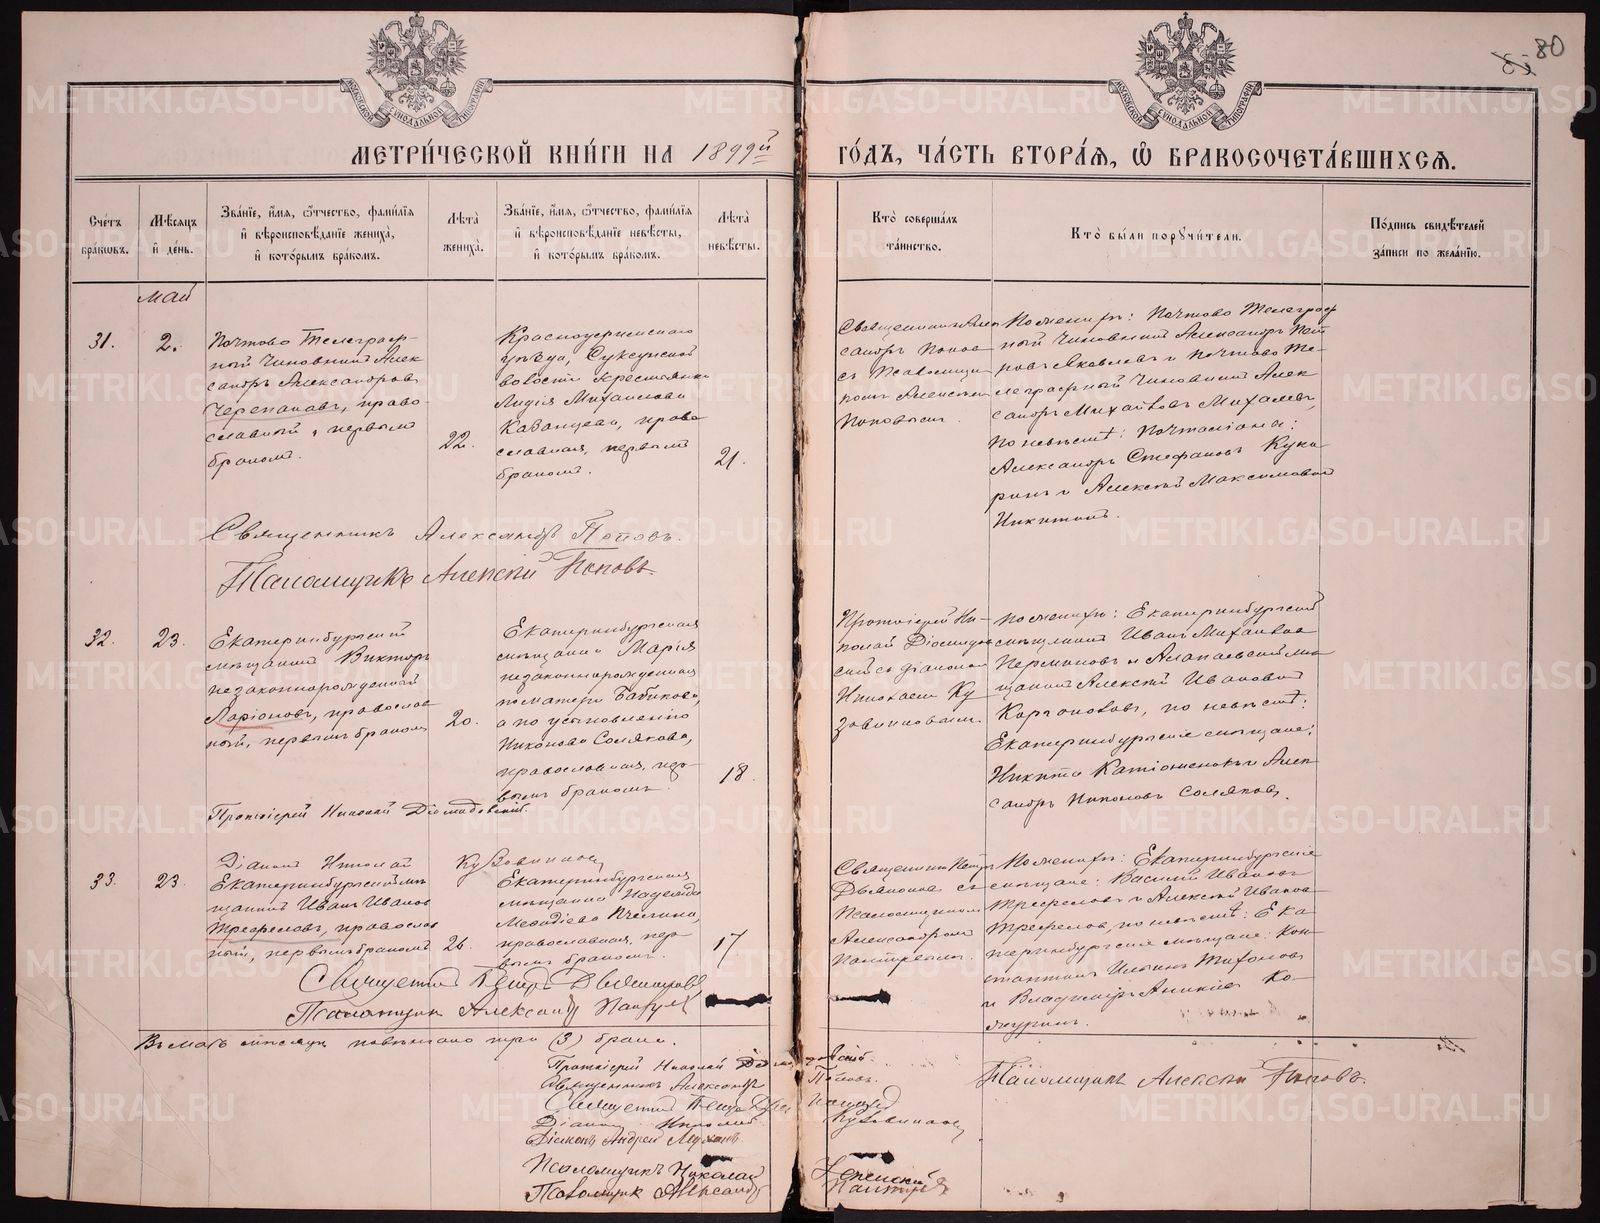 80
МЕТРИЧЕСКОЙ КНИГИ НА 1899й ГОДЪ, ЧАСТЬ ВТОРАЯ, Ѡ БРАКОСОЧЕТАВШИХСЯ.
Счетъ браковъ.
Мѣсяцъ и день.
Званіе, имя, отчество, фамилія и вѣроисповѣданіе жениха, и которымъ бракомъ.
Лѣта жениха.
Званіе, имя, отчество, фамилія и вѣроисповѣданіе невѣсты, и которымъ бракомъ.
Лѣта невѣсты.
Кто совершалъ таинство.
Кто были поручители.
Подпись свидѣтелей записи по желанію.
Май
31.
2.
Почтово Телеграф-
ный Чиновникъ Алек
сандръ Александровъ
Черепановъ, право-
славный, первымъ
бракомъ.
22.
Красноуфимскаго
уѣзда, Суксунской
волости крестьянка
Лидія Михайлова
Казанцева, право
славная, первымъ
бракомъ.
21.
Священникъ Алек
сандръ Попов
съ Псаломщи
комъ Алексеем
Поповымъ.
По женихѣ: Почтово Телеграф
ный Чиновникъ Александръ Пет
ровъ Яковлевъ и Почтово Те-
леграфный Чиновникъ Алек
сандръ Михайловъ Михалевъ,
по невѣстѣ: Почталіоны:
Александръ Стефановъ Кука
ринъ и Алексѣй Максимовъ
Никитинъ.
Священникъ Александръ Поповъ.
Псаломщикъ Алексѣй Поповъ.
32.
23.
Екатеринбургскій
мѣщанинъ Викторъ
незаконнорожденный
Ларіоновъ, православ
ный, первымъ бракомъ
20.
Екатеринбургская
мѣщанка Марія
незаконнорожденная
по матери Бабикова,
а по усыновленію
Никонова Солякова,
православная, пер-
вымъ бракомъ.
18.
Протоіерей Ни-
колай Діомидов
скій съ діакономъ
Николаемъ Ку
зовниковымъ.
По женихѣ: Екатеринбургскій
мѣщанинъ Иванъ Михайлов
Пермяковъ и Алапаевскій мѣ
щанинъ Алексѣй Ивановъ
по невѣстѣ:
Екатеринбургские мѣщане:
Никита и Алек
сандръ Никоновъ Соляковъ.
Протоіерей Николай Діомидовскій.
Діаконъ Николай Кузовников
33.
23.
Екатеринбургскій мѣ
щанинъ Иванъ Иванов
Трефеловъ, православ
ный, первымъ бракомъ
26.
Екатеринбургская
мѣщанка Надежда
Меѳодіева
православная, пер-
вымъ бракомъ.
17
Священникъ Петръ
съ
Псаломщикомъ
Александромъ
По женихѣ: Екатеринбургские
мѣщане: Василій Ивановъ
Трефеловъ и Алексѣй Иванов
Трефелов, по невѣстѣ: Ека
теринбургские мѣщане: Кон-
стантинъ Ильинъ Тихоновъ
и Владиміръ
Священникъ Петръ
Псаломщик Александръ
Въ маѣ мѣсяцѣ повѣнчано три (3) брака.
Протоіерей Николай Діомидовскій.
Священникъ Александръ Поповъ.
Священник Петръ
Діаконъ Николай Кузовников
Діаконъ Андрей
Псаломщикъ Алексѣй Поповъ.
Псаломщикъ Николай
Псаломщик Александръ